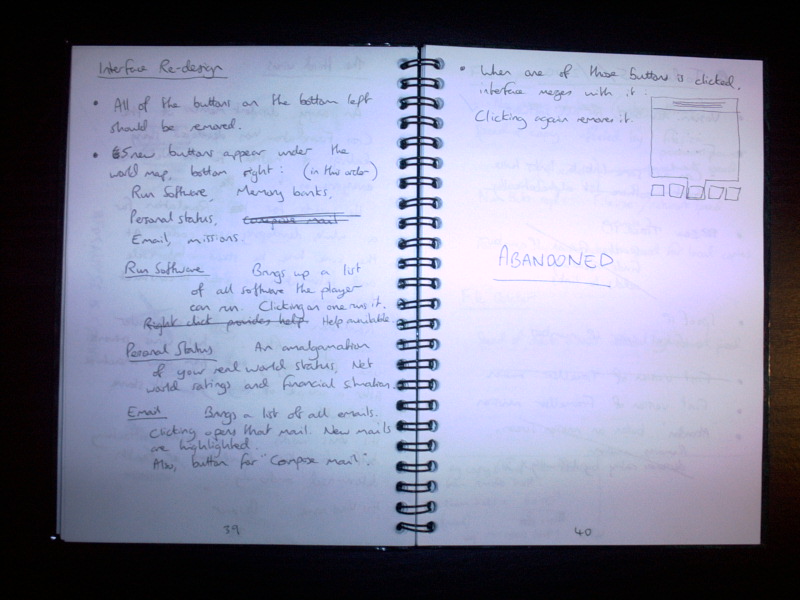 Interface Re-design
• All of the buttons on the bottom left
should be removed.
• 5 new buttons appear under the
world map, bottom right: (in this order)
Run Software, Memory banks,
Personal status, Compose mail
Email, missions.
Run Software Brings up a list
of all software the player
can run. Clicking on one runs it.
Right click provides help. Help available.
Personal Status An amalgamation
of your real world status, Net
world ratings and financial situation.
Email Brings a list of all emails.
Clicking opens that mail. New mails
are highlighted.
Also, button for "Compose mail".
39
• When one of those buttons is clicked,
interface merges with it:
Clicking again removes it.
ABANDONED
40